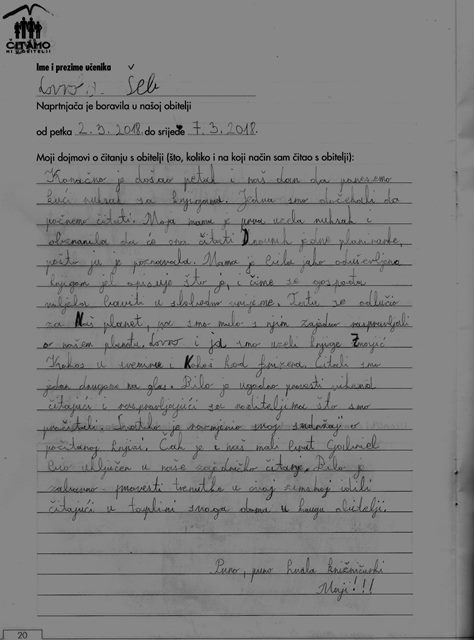 ČITAMO
MI U OBITELJI
Ime i prezime učenika
Lovro i Šeb
Naprtnjača je boravila u našoj obitelji
od petka 2.3.2018. do srijede 7.3.2018.
Moji dojmovi o čitanju s obitelji (što, koliko i na koji način sam čitao s obitelji):
Konačno je došao petak i naš dan da ponesemo
kući ruksak sa knjigama. Jedva smo dočekali da
počnemo čitati. Moja mama je prva uzela ruksak i
obznanila da će ona čitati Dnevnik jedne
pošto ju je poznavala. Mama je bila jako oduševljena
knjigom jer opisuje što je, čime se gospođa
voljela baviti u slobodno vrijeme. Tata se odlučio
za Naš planet, pa smo malo s njim zajedno raspravljali
o našem planetu. Lovro i ja smo uzeli knjige
Krokos u i Kokoš kod frizera. Čitali smo
jedan drugome na glas. Bilo je ugodno provesti vikend
čitajući i raspravljajući sa roditeljima što smo
pročitali. Svatko je razmjenio svoj sadržaj o
počitanoj knjizi. Čak je i naš mali brat Gabriel
bio uključen u naše zajedničko čitanje. Bilo je
zabavno provesti trenutke u ovoj zimskoj idili
čitajući u toplini svoga doma u krugu obitelji.
Puno, puno hvala knižničarki
Maji!!!
20